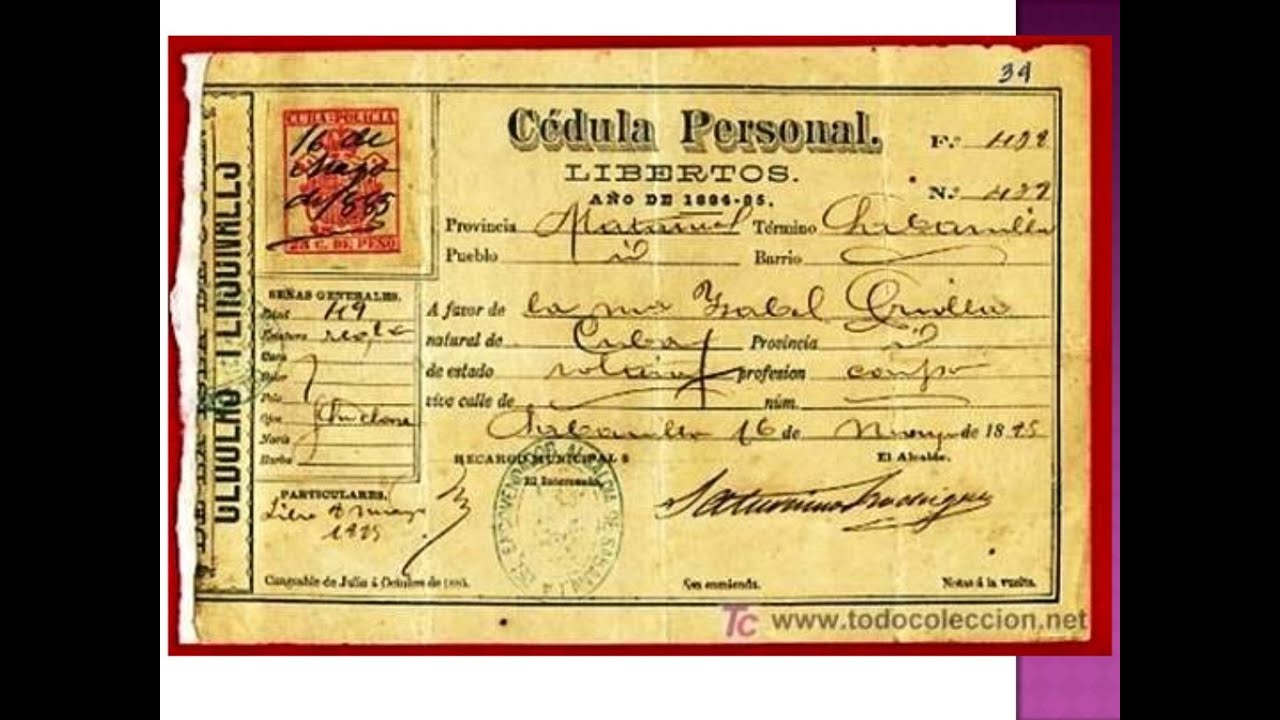 34
CUBA-POLICIA
16 de
Mayo
de 1885
25 C. DE PESO
Cédula Personal.
LIBERTOS.
AÑO DE 1884-85.
F.º 432
N.º 432
Provincia Término
Pueblo Barrio
SEÑAS GENERALES.
Edad 49
Estatura regle
Cara
Color
Pelo
Ojos
Nariz
Barba
A favor de la mª Ysabel Criolla
natural de Cuba Provincia
de estado soltera profesion campo
vive calle de núm.
16 de Mayo de 1885
RECARGO MUNICIPAL $
El Interesado,
El Alcalde,
Saturnino Rodriguez
PARTICULARES.
Libre Mayo
1885
Cangeable de Julio á Octubre de 1885.
Sin enmienda.
Notas á la vuelta.
CEDULAS PERSONALES
ALCALDIA DE
Tc www.todocoleccion.net